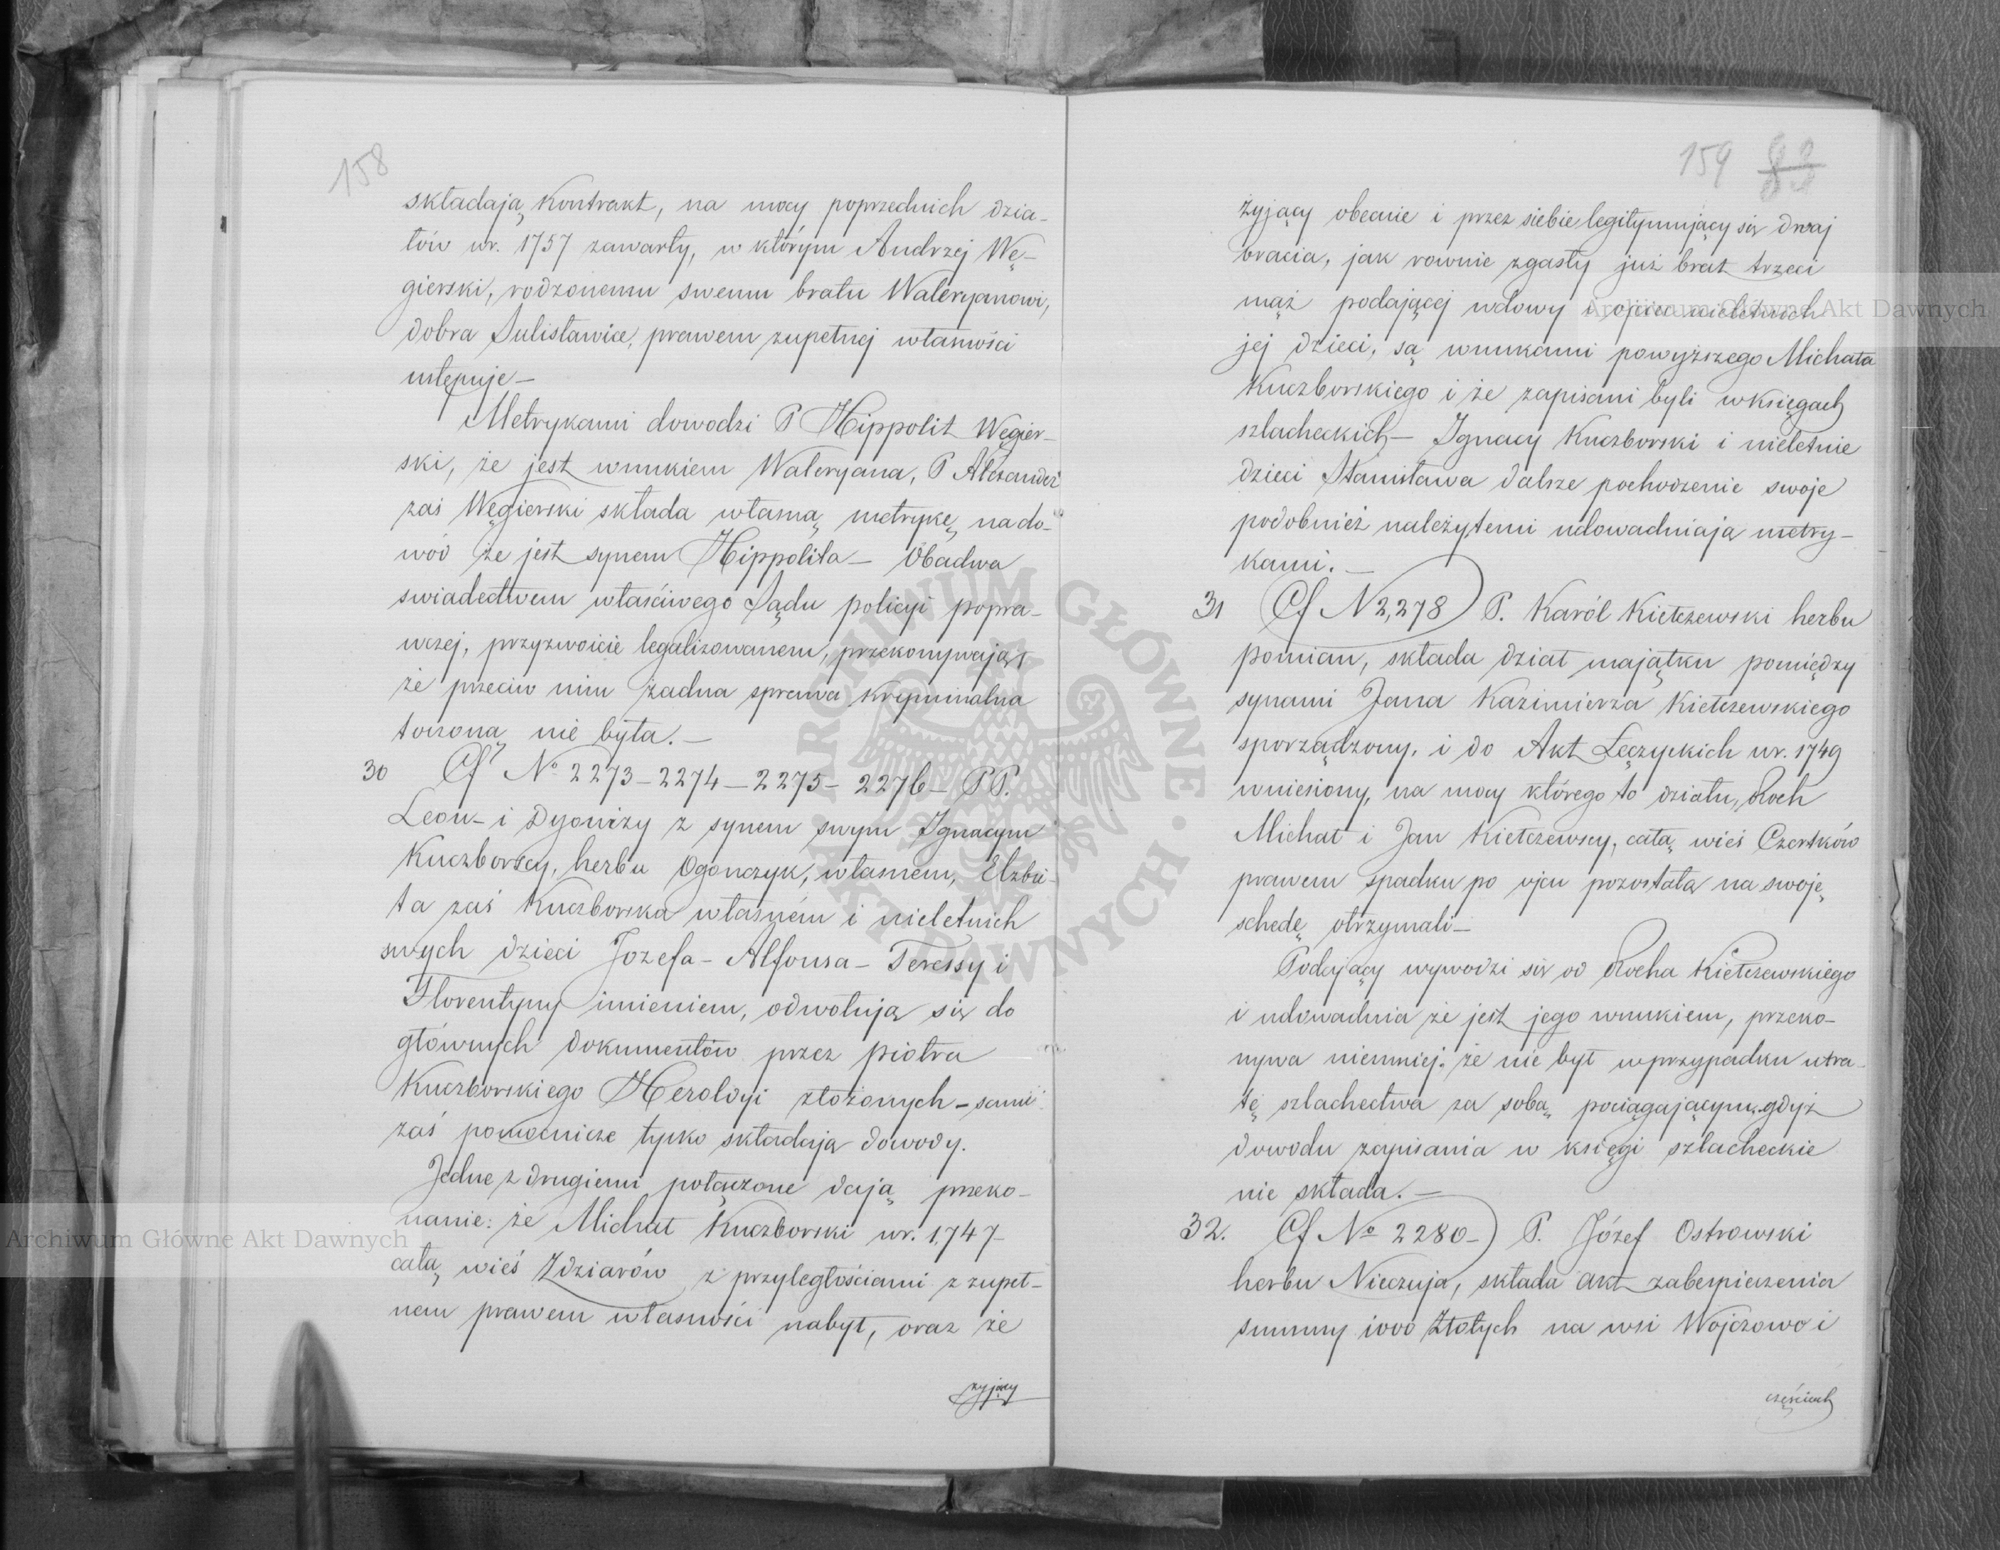 158
składają Kontrakt, na mocy poprzednich dzia-
łów ur. 1757 zawarty, w którym Andrzej Wę-
gierski, rodzonemu swemu bratu Waleryanowi,
dobra Sulisławice, prawem zupełnej własności
ustępuje –
Metrykami dowodzi P Hippolit Węgier-
ski, że jest wnukiem Waleryana, P Alexander
zaś Węgierski składa własną metrykę na do-
wód że jest synem Hippolita – Obadwa
swiadectwem właściwego Sądu policyi popra-
wczej, przyzwoicie legalizowanem, przekonywają
że przeciw nim żadna sprawa kryminalna
toczoną nie była. –
30 Cf N° 2273 – 2274 – 2275 – 2276 – PP.
Leon – i Dyonizy z synem swym Ignacym
Kuczborscy, herbu Ogończyk, własnem, Elżbie-
ta zaś Kuczborska własném i nieletnich
swych dzieci Jozefa – Alfonsa – Teressy i
Florentyny imieniem, odwołują się do
głównych dokumentów przez piotra
Kuczborskiego Heroldyi złożonych – sami
zaś pomocnicze tylko składają dowody.
Jedne z drugiemi połączone dają przeko-
nanie: że Michał Kuczborski ur. 1747
całą wieś Zdziarów z przyległościami z zupeł-
nem prawem własności nabył, oraz że
żyjący
159 83
żyjący obecnie i przez siebie legitymujący się dwaj
bracia, jak rownie zgasły już brat trzeci
mąż podającej wdowy i ojciec nieletnich
jej dzieci, są wnukami powyższego Michała
Kuczborskiego i że zapisani byli w Księgach
szlacheckich – Ignacy Kuczborski i nieletnie
dzieci Stanisława dalsze pochodzenie swoje
podobnież należytemi udowadniają metry-
kami. –
31 Cf N 2,278 P. Karól Kiełczewski herbu
pomian, składa dział majątku pomiędzy
synami Jana Kazimierza Kiełczewskiego
sporządzony, i do Akt Łęczyckich ur. 1749
wniesiony, na mocy którego to działu, Roch
Michał i Jan Kiełczewscy, całą wieś Czartków
prawem spadku po ojcu pozostałą na swoję
schedę otrzymali –
Podający wywodzi się od Rocha Kiełczewskiego
i udowadnia że jest jego wnukiem, przeko-
nywa niemniej: że nie był w przypadku utra-
tę szlachectwa za sobą pociągającym, gdyż
dowodu zapisania w księgi szlacheckie
nie składa. –
32. Cf N° 2280 – P. Józef Ostrowski
herbu Nieczuja, składa akt zabezpieczenia
summy 1000 Złotych na wsi Wojczowo i
częściach
Archiwum Główne Akt Dawnych
Archiwum Główne Akt Dawnych
ARCHIWUM GŁÓWNE · AKT DAWNYCH ·